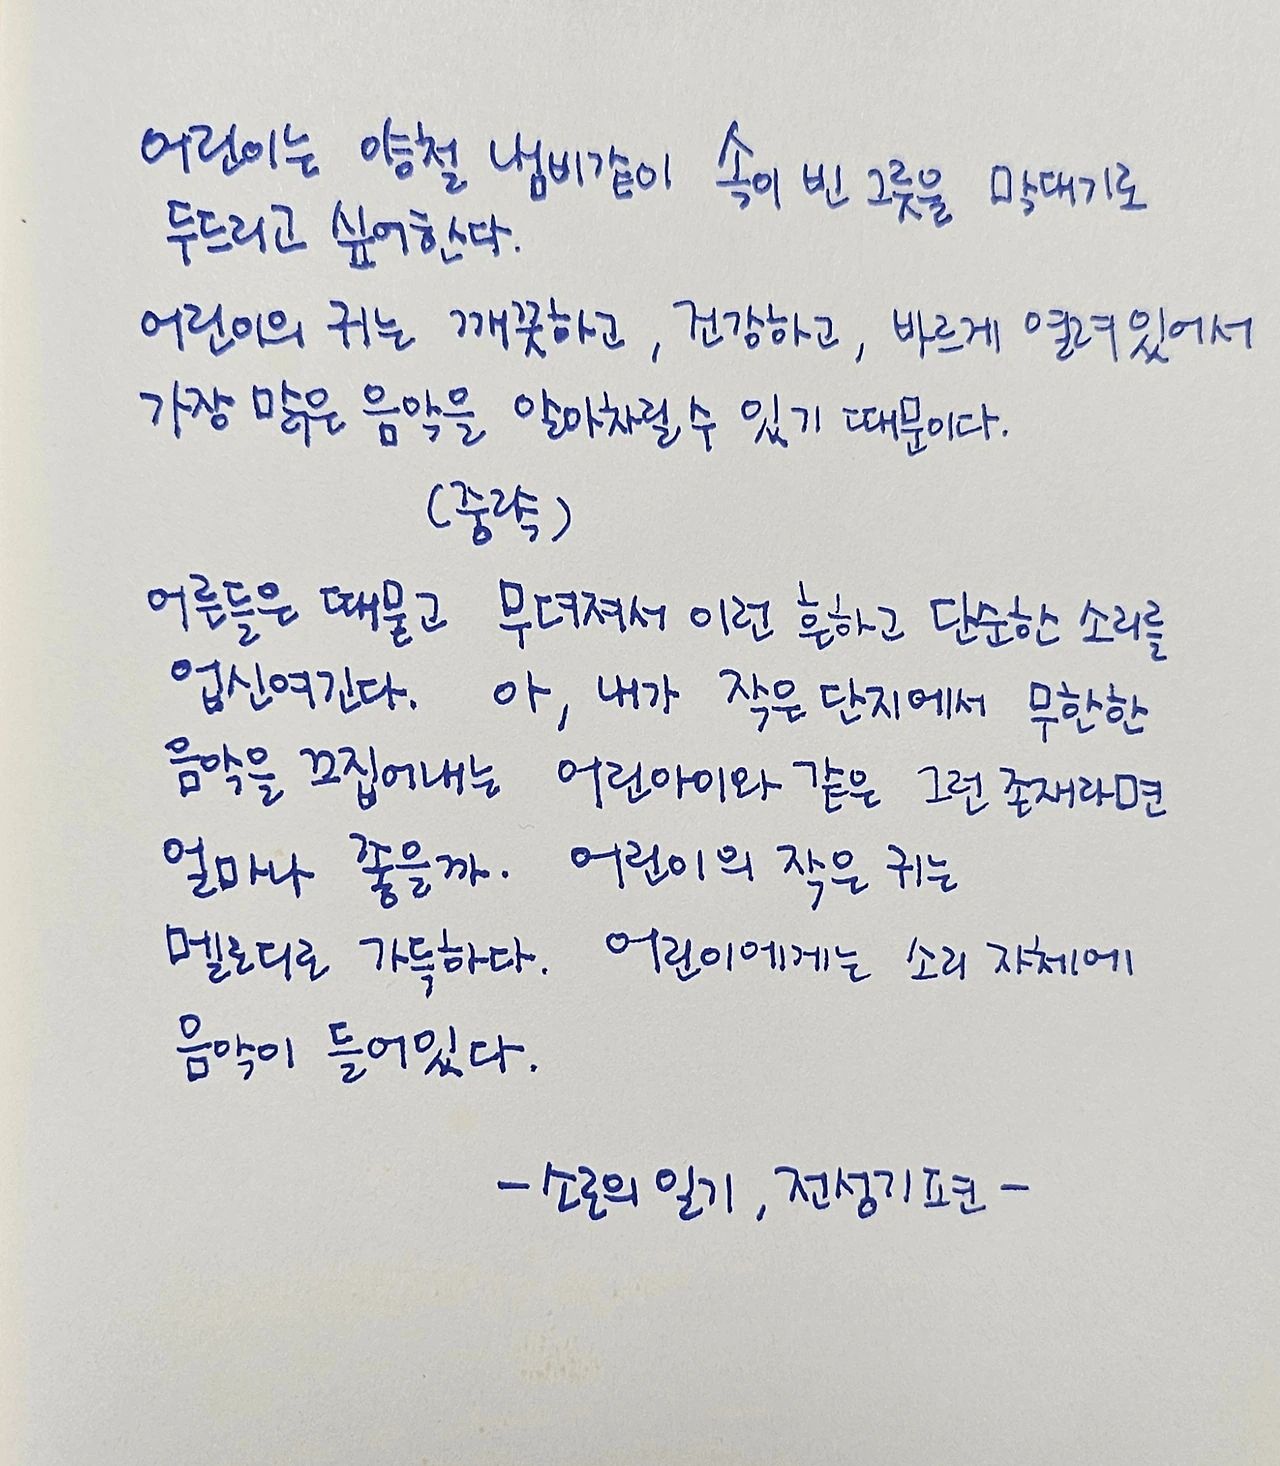 어린이는 양철 냄비같이 속이 빈 그릇을 막대기로
두드리고 싶어한다.
어린이의 귀는 깨끗하고, 건강하고, 바르게 열려있어서
가장 맑은 음악을 알아차릴 수 있기 때문이다.
(중략)
어른들은 때묻고 무뎌져서 이런 흔하고 단순한 소리를
업신여긴다. 아, 내가 작은 단지에서 무한한
음악을 끄집어내는 어린아이와 같은 그런 존재라면
얼마나 좋을까. 어린이의 작은 귀는
멜로디로 가득하다. 어린이에게는 소리 자체에
음악이 들어있다.
- 소로의 일기, 전성기편 -